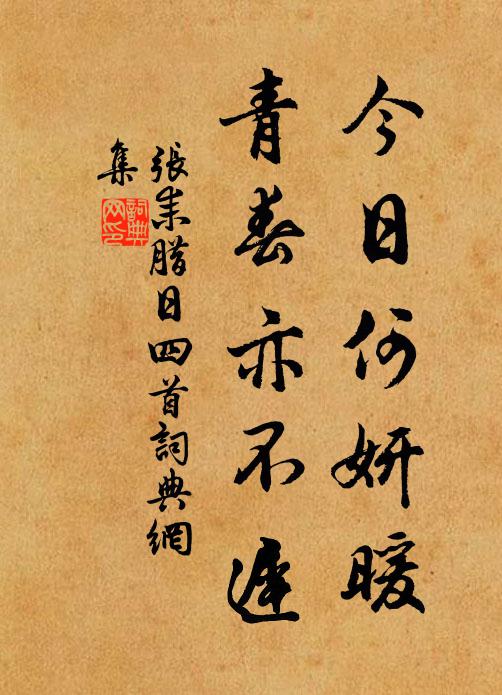 今日何妍暖
青春亦不遲
張耒腊日四首詞典網
集
詞典
網印